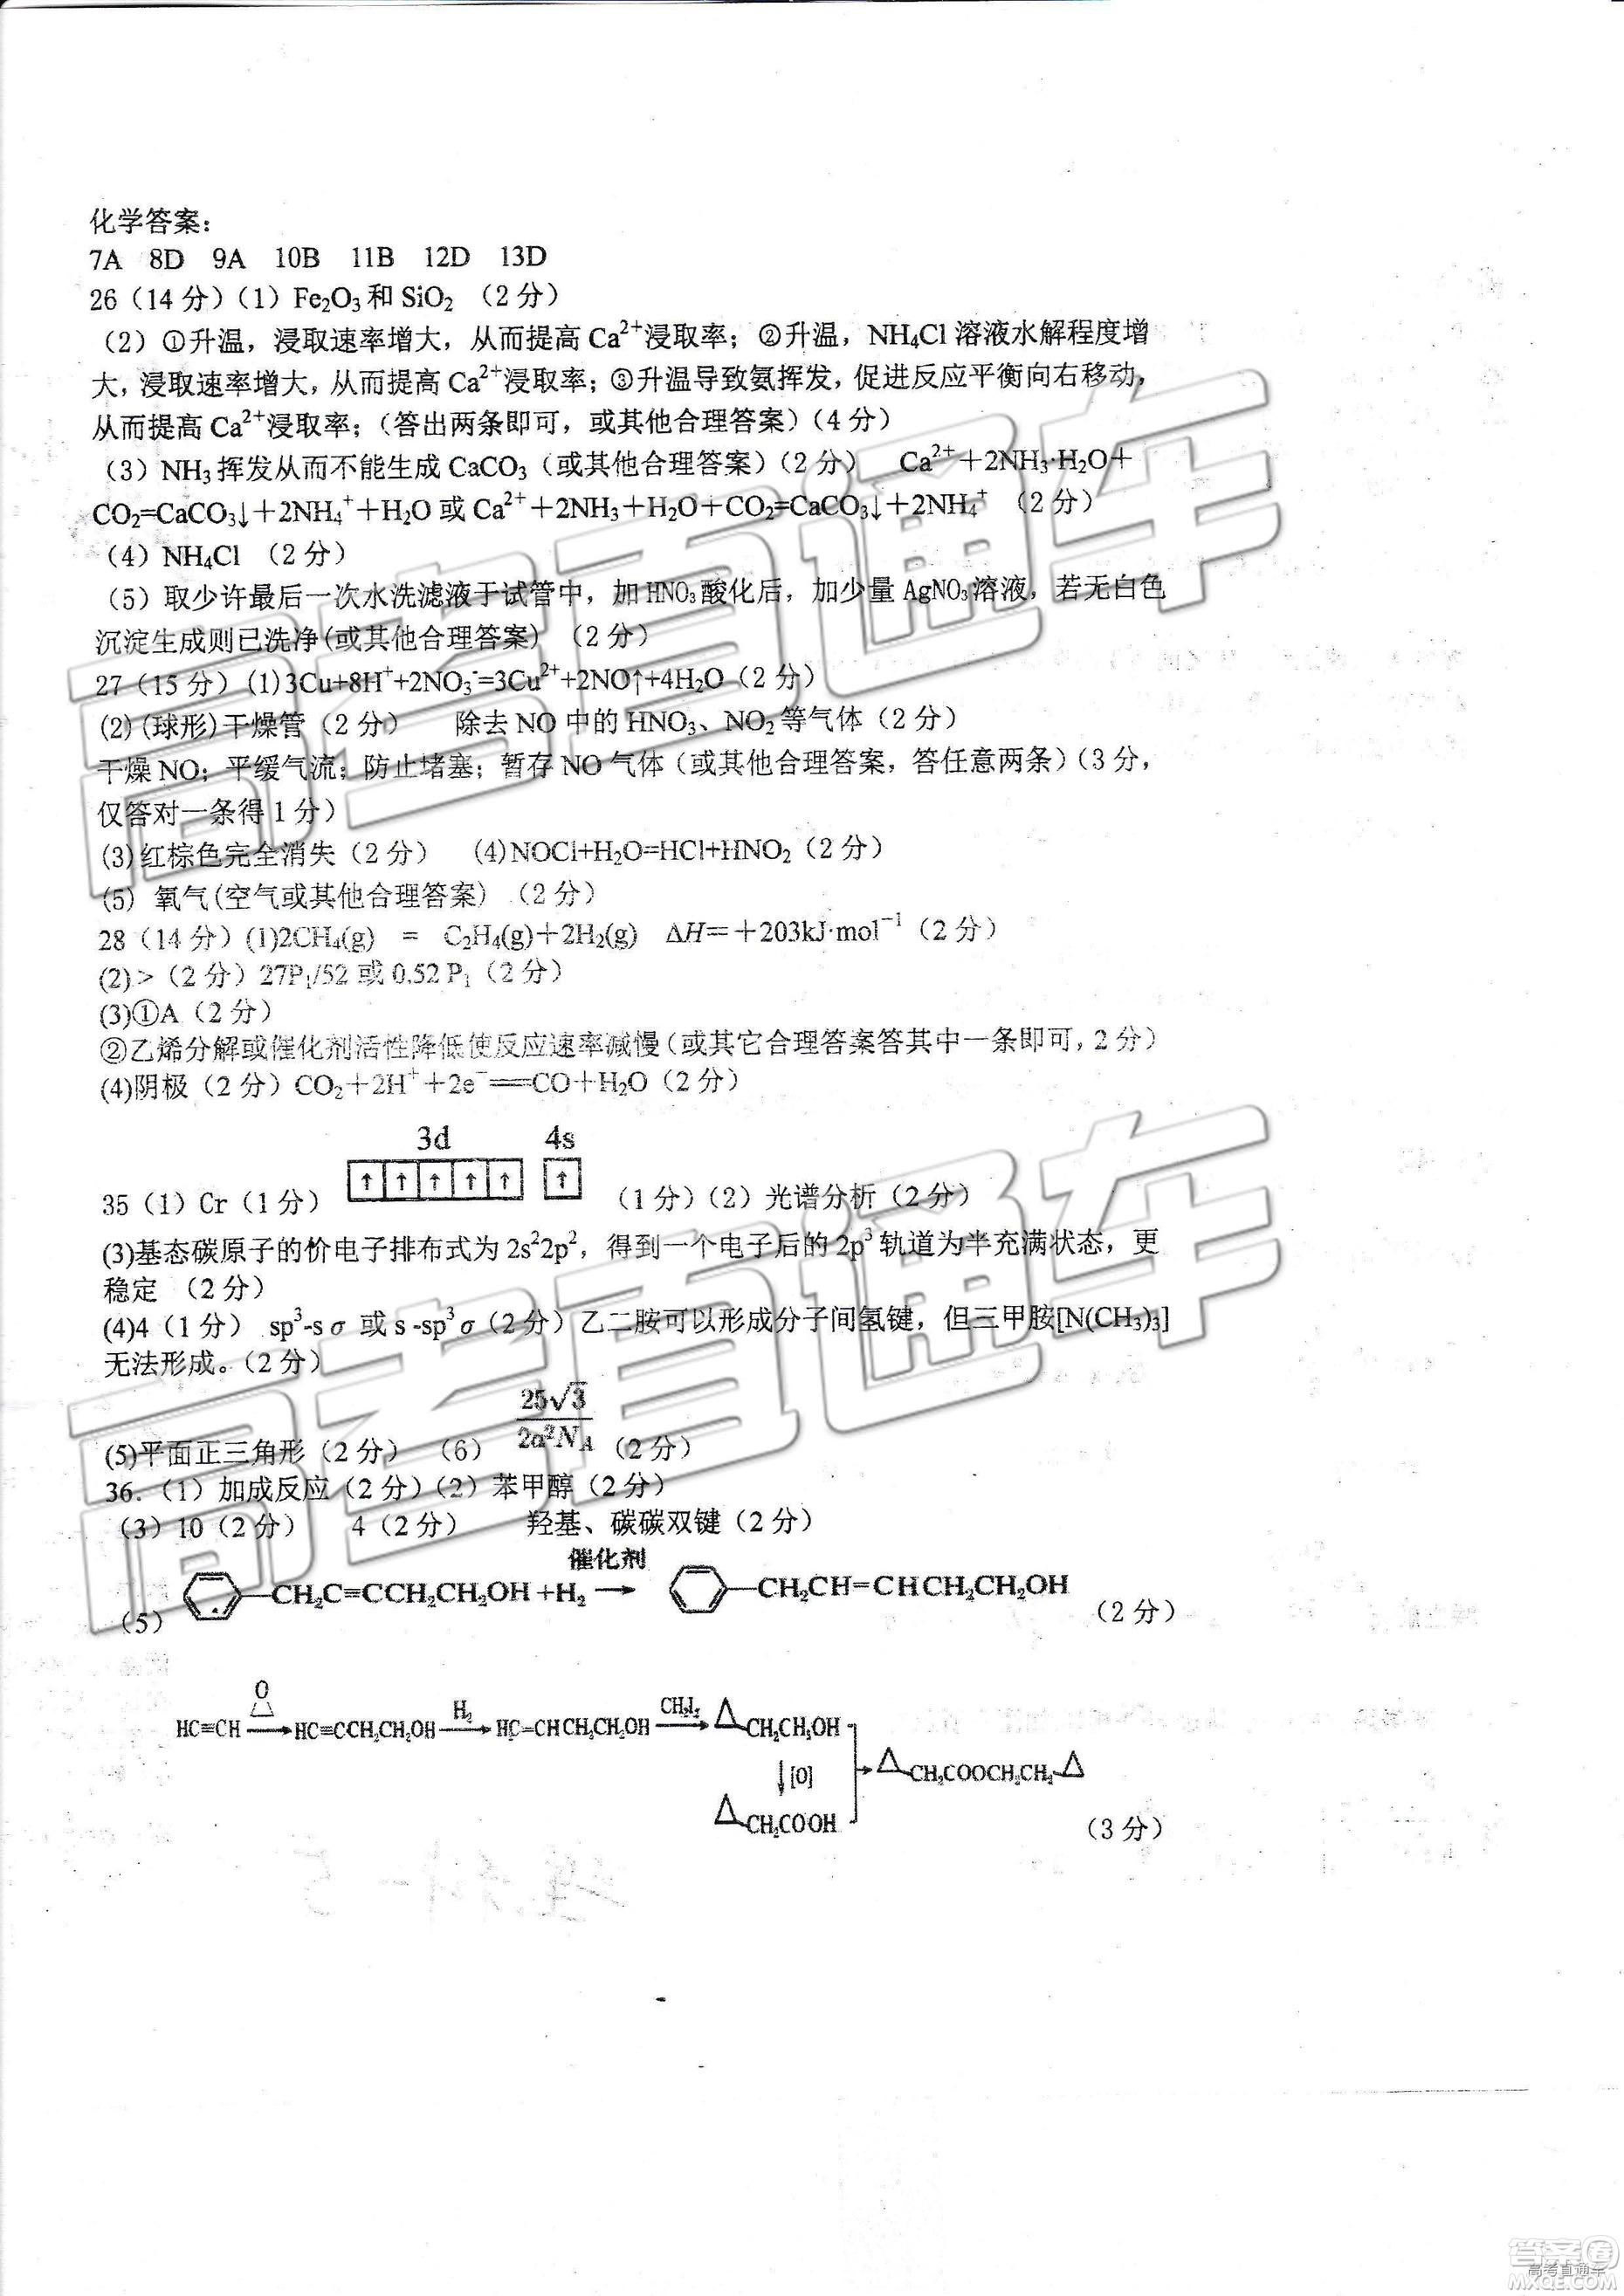 化学答案：
7A 8D 9A 10B 11B 12D 13D
26（14分）（1）Fe₂O₃和SiO₂ （2分）
（2）①升温，浸取速率增大，从而提高Ca²⁺浸取率；②升温，NH₄Cl溶液水解程度增
大，浸取速率增大，从而提高Ca²⁺浸取率；③升温导致氨挥发，促进反应平衡向右移动，
从而提高Ca²⁺浸取率；（答出两条即可，或其他合理答案）（4分）
（3）NH₃挥发从而不能生成CaCO₃（或其他合理答案）（2分） Ca²⁺＋2NH₃·H₂O＋
CO₂=CaCO₃↓＋2NH₄⁺＋H₂O或Ca²⁺＋2NH₃＋H₂O＋CO₂=CaCO₃↓＋2NH₄⁺ （2分）
（4）NH₄Cl （2分）
（5）取少许最后一次水洗滤液于试管中，加HNO₃酸化后，加少量AgNO₃溶液，若无白色
沉淀生成则已洗净(或其他合理答案) （2分）
27（15分）(1)3Cu+8H⁺+2NO₃⁻=3Cu²⁺+2NO↑+4H₂O（2分）
(2)(球形)干燥管（2分） 除去NO中的HNO₃、NO₂等气体（2分）
干燥NO；平缓气流；防止堵塞；暂存NO气体（或其他合理答案，答任意两条）（3分，
仅答对一条得1分）
(3)红棕色完全消失（2分） (4)NOCl+H₂O=HCl+HNO₂（2分）
(5) 氧气(空气或其他合理答案) （2分）
28（14分）(1)2CH₄(g) = C₂H₄(g)＋2H₂(g) ΔH=＋203kJ·mol⁻¹（2分）
(2)>（2分）27P₁/52或0.52 P₁（2分）
(3)①A（2分）
②乙烯分解或催化剂活性降低使反应速率减慢（或其它合理答案答其中一条即可，2分）
(4)阴极（2分）CO₂＋2H⁺＋2e⁻══CO＋H₂O（2分）
3d 4s
35（1）Cr（1分） ↑ ↑ ↑ ↑ ↑ ↑ （1分）（2）光谱分析（2分）
(3)基态碳原子的价电子排布式为2s²2p²，得到一个电子后的2p³轨道为半充满状态，更
稳定 （2分）
(4)4（1分） sp³-sσ 或s-sp³σ（2分）乙二胺可以形成分子间氢键，但三甲胺[N(CH₃)₃]
无法形成。（2分）
(5)平面正三角形（2分） （6） 25√3/2a²N_A （2分）
36.（1）加成反应（2分）（2）苯甲醇（2分）
（3）10（2分） 4（2分） 羟基、碳碳双键（2分）
催化剂
（5） —CH₂C≡CCH₂CH₂OH +H₂ → —CH₂CH=CHCH₂CH₂OH （2分）
O
HC≡CH → HC≡CCH₂CH₂OH H₂→ HC=CHCH₂CH₂OH CH₂I₂→ CH₂CH₂OH
↓[O] → CH₂COOCH₂CH₂
CH₂COOH
（3分）
高考直通车
高考直通车
答案圈
高考直通车
MXQE.COM